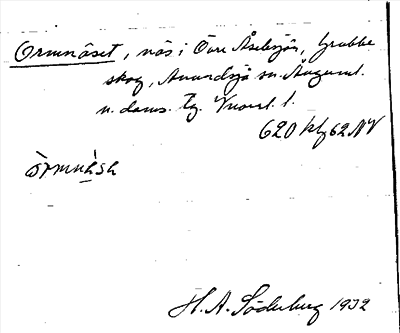 Ormnäset, näs i Övre Åselesjön, Grubbe
skog, Anundsjö sn. Ångerml.
n. doms. tg. Vnorrl. l.
620 kfg 62 NV
H. A. Söderberg 1932